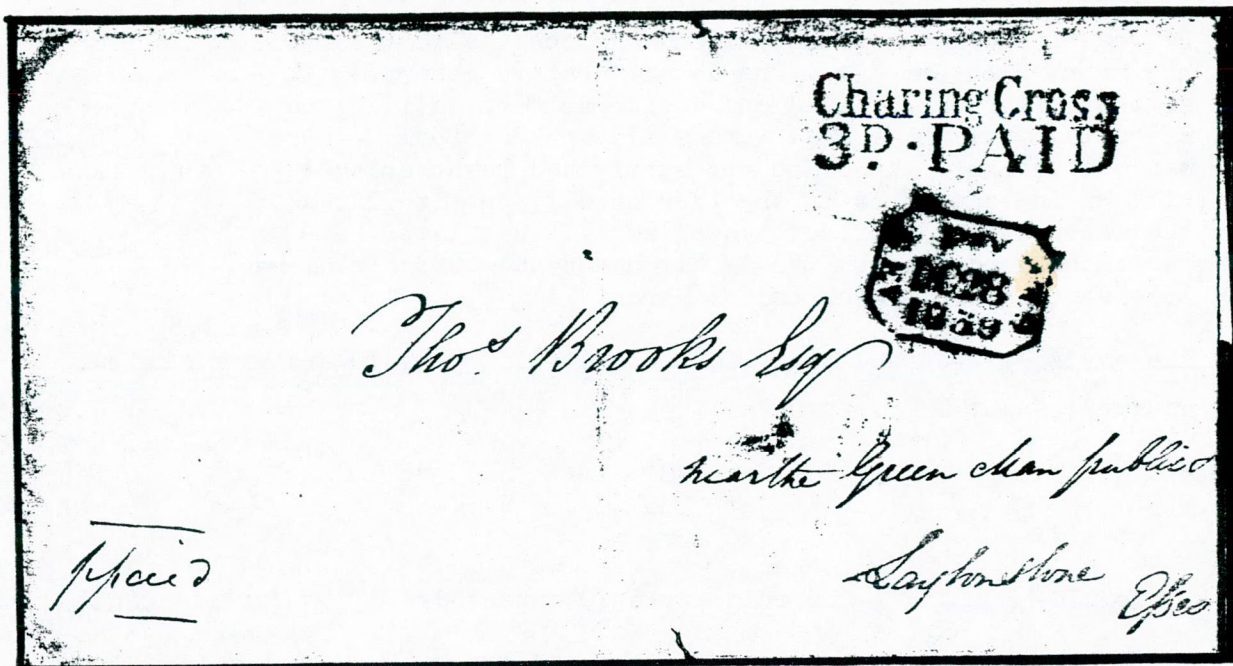 Charing Cross
3D. PAID
DE 28
1839
Thos. Brooks Esq
near the Green Man public
Laytonstone
Essex
ppaid